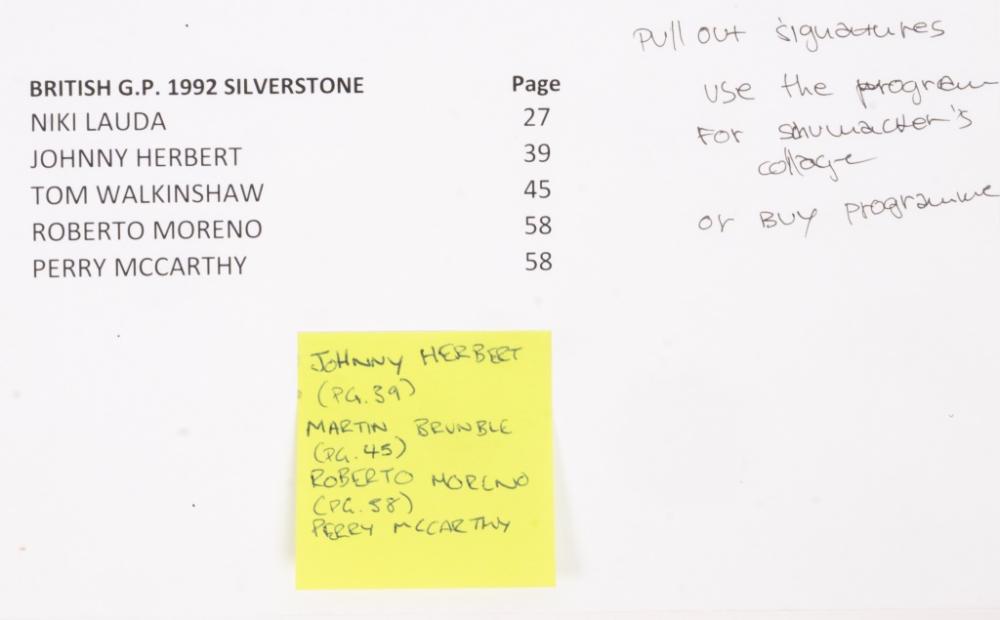 BRITISH G.P. 1992 SILVERSTONE Page
NIKI LAUDA 27
JOHNNY HERBERT 39
TOM WALKINSHAW 45
ROBERTO MORENO 58
PERRY MCCARTHY 58
Pull out signatures
use the program
For Schumacher's
collage
or BUY programme
JOHNNY HERBERT
(PG.39)
MARTIN BRUNBLE
(PG.45)
ROBERTO MORENO
(PG.58)
PERRY MCCARTHY